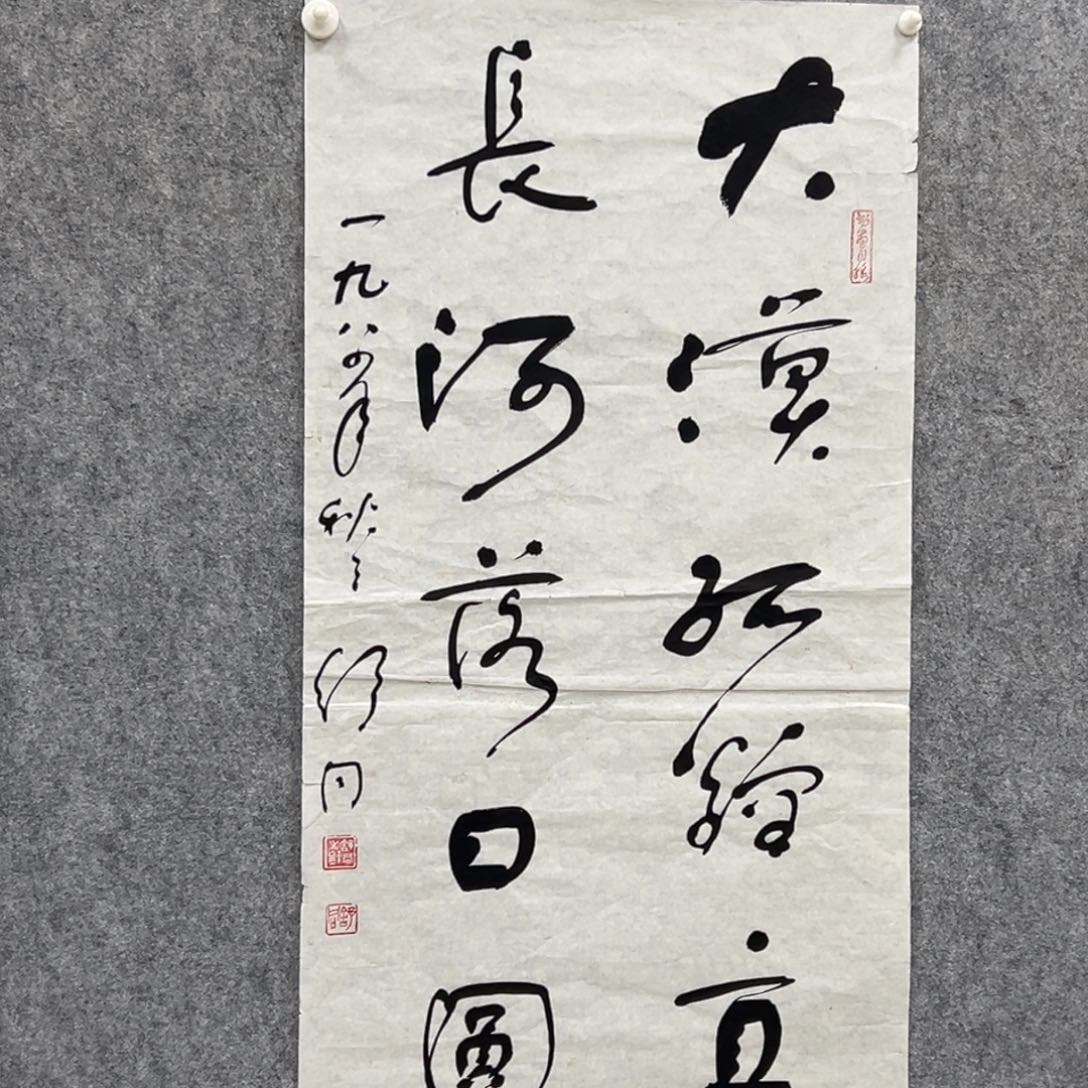 大漠孤煙直
長河落日圓
一九八四年秋 舒同
舒同